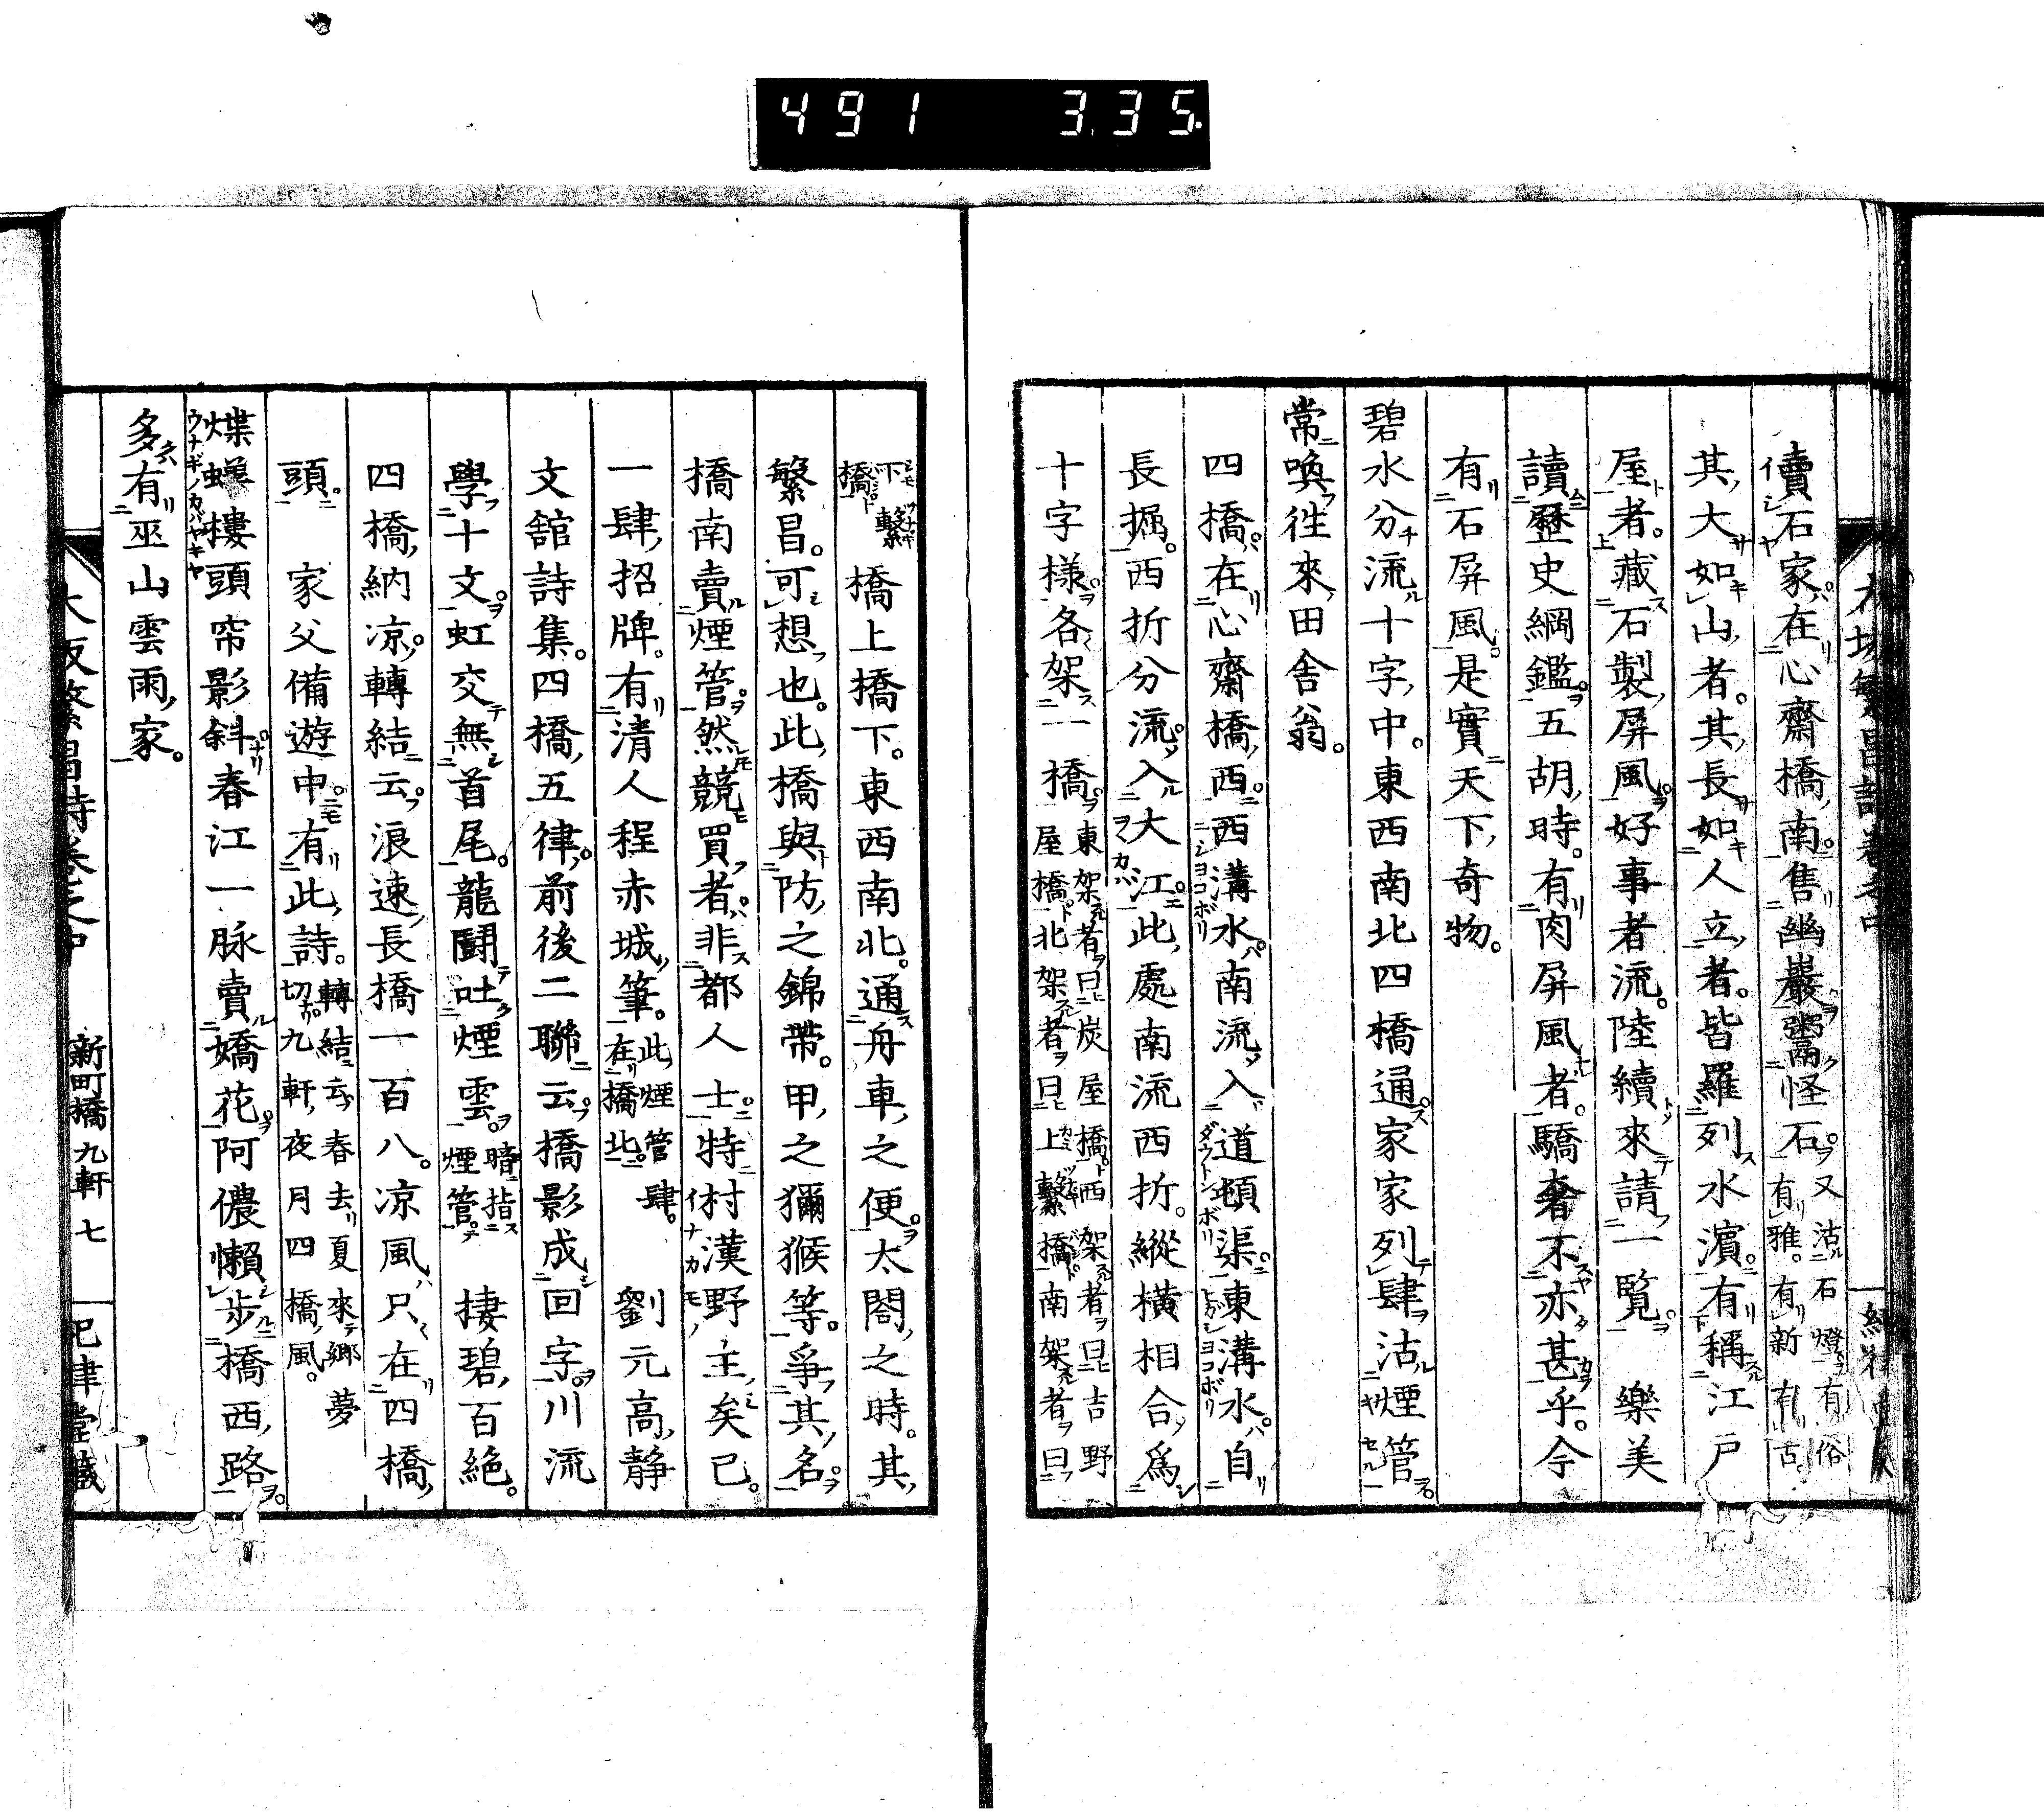 491 3.35.
賣石家在心齋橋南售幽巖鬻怪石又沽石燈有俗有雅有新有古
其大如山者其長如人立者皆羅列水濱有稱江戸
屋者藏石製屏風好事者流陸續來請一覽 樂美
讀歷史綱鑑五胡時有肉屏風者驕奢不亦甚乎今
有石屏風是實天下奇物
碧水分流十字中東西南北四橋通家家列肆沽煙管
常喚徃來田舍翁
四橋在心齋橋西西溝水南流入道頓渠東溝水自
長堀西折分流入大江此處南流西折縱橫相合爲
十字樣各架一橋東架者曰炭屋橋西架者曰吉野屋橋北架者曰上繫橋南架者曰
下繫橋 橋上橋下東西南北通舟車之便太閤之時其
繁昌可想也此橋與防之錦帶甲之獮猴等爭其名
橋南賣煙管然競買者非都人士特村漢野主矣已
一肆招牌有清人程赤城筆此煙管肆在橋北 劉元高靜
文舘詩集四橋五律前後二聯云橋影成回字川流
學十文虹交無首尾龍鬪吐煙雲暗指煙管 棲碧百絕
四橋納凉轉結云浪速長橋一百八凉風只在四橋
頭 家父備遊中有此詩轉結云春去夏來鄉夢切九軒夜月四橋風
煠蟬樓頭帘影斜春江一脉賣嬌花阿儂懶步橋西路
多有巫山雲雨家
大坂繁昌詩卷之中 新町橋 九軒 七